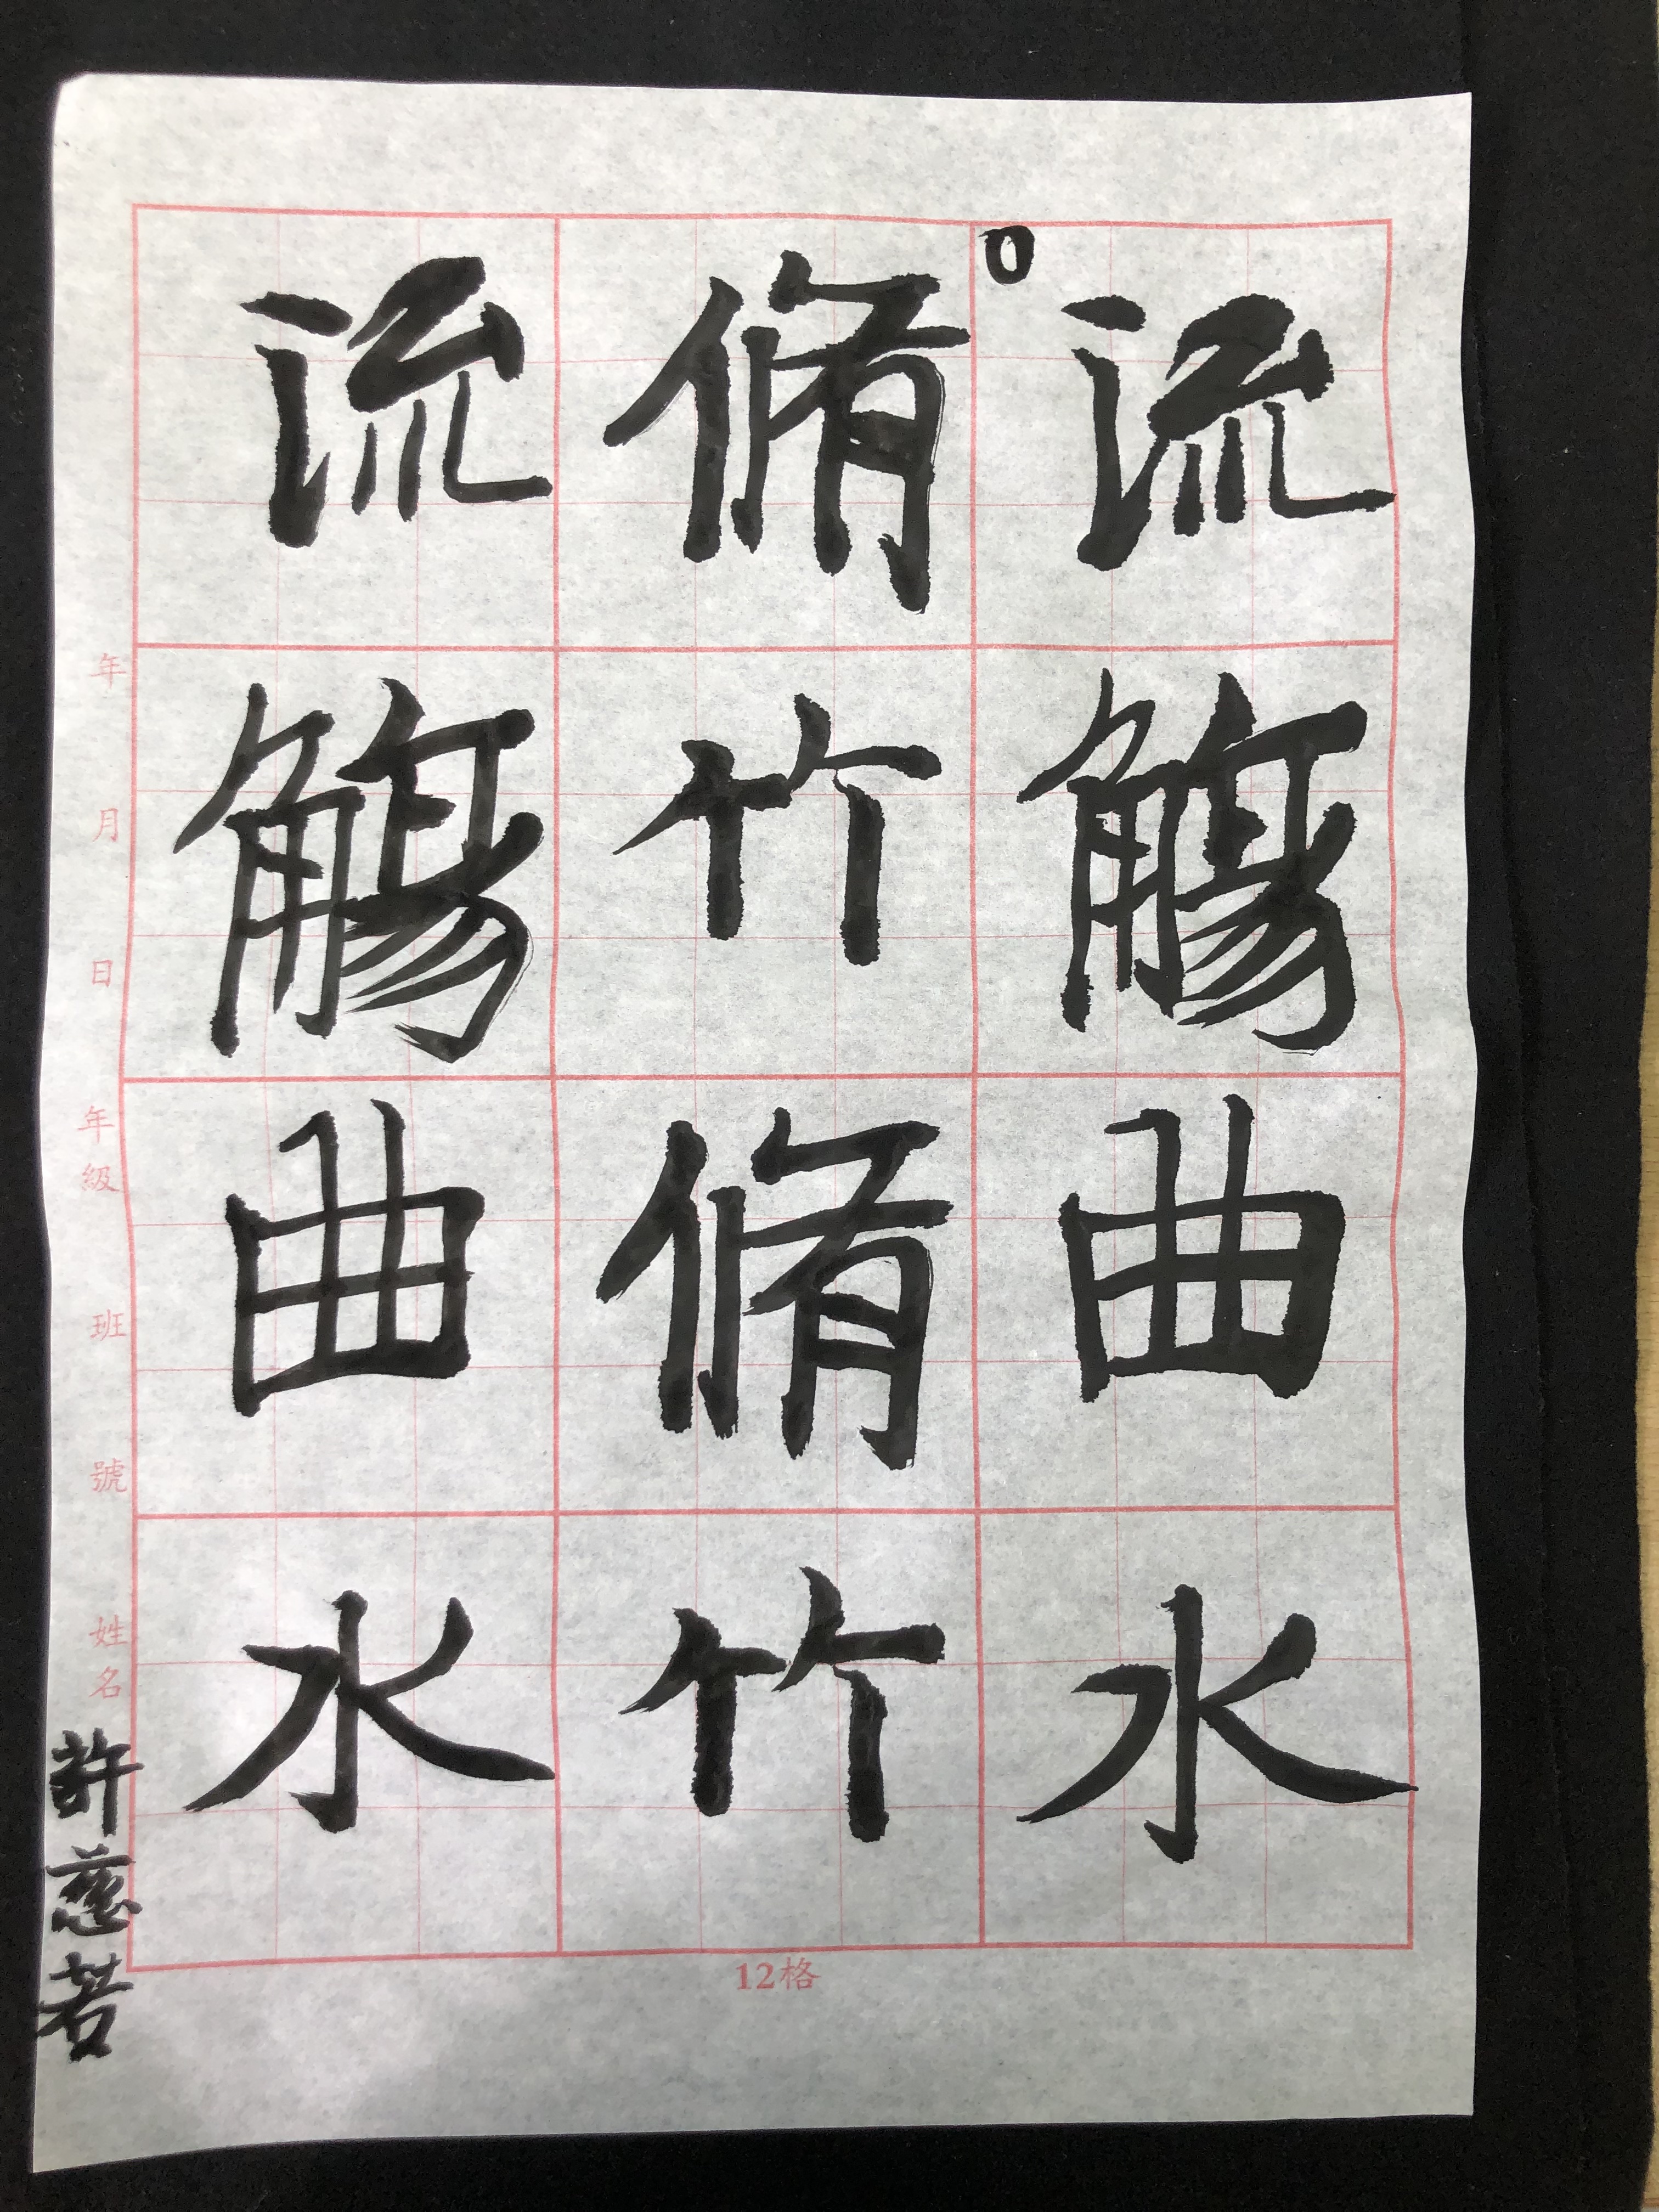 流觴曲水
脩竹脩竹
流觴曲水
年 月 日 年級 班 號 姓名
許慈若
12格